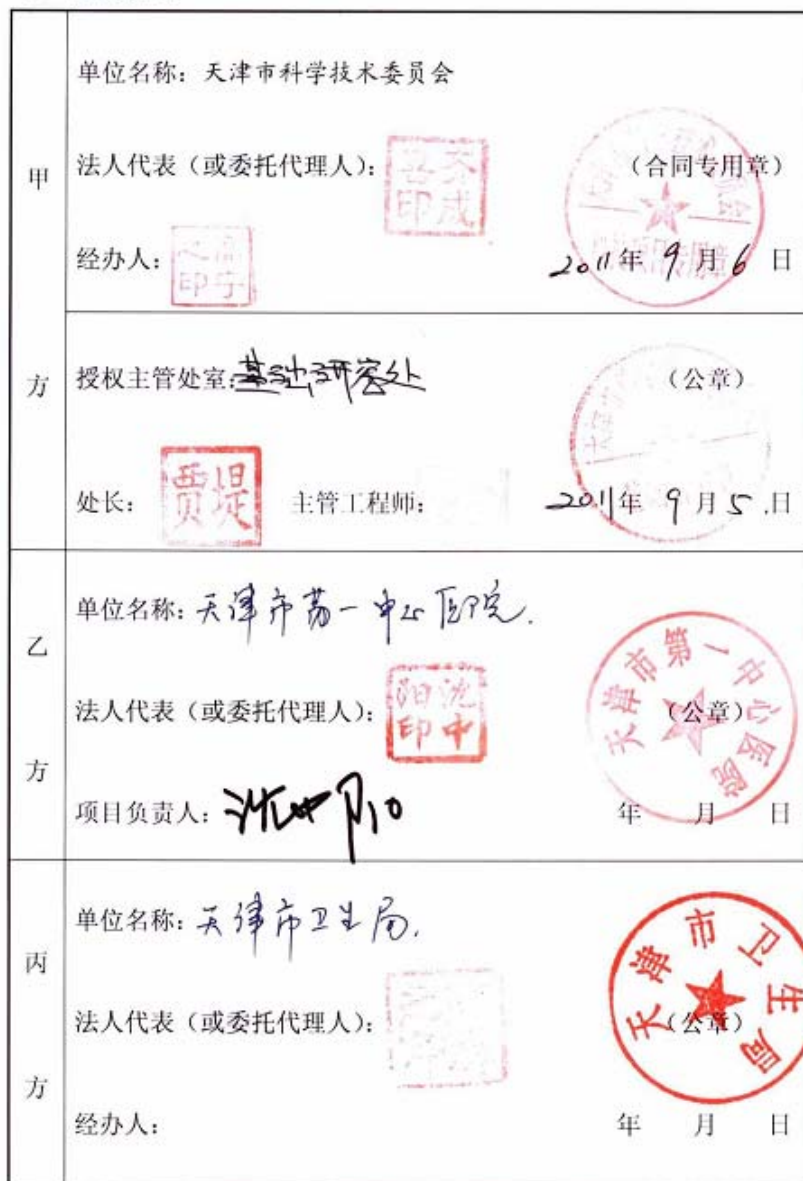 甲方
单位名称：天津市科学技术委员会
法人代表（或委托代理人）：
（合同专用章）
经办人：
2011年 9月6日
授权主管处室：基础研究处
（公章）
处长：贾堤 主管工程师：
2011年 9月5日
乙方
单位名称：天津市第一中心医院.
法人代表（或委托代理人）：沈中阳印
（公章）
天津市第一中心医院
项目负责人：沈中阳
年 月 日
丙方
单位名称：天津市卫生局.
法人代表（或委托代理人）：
（公章）
天津市卫生局
经办人：
年 月 日